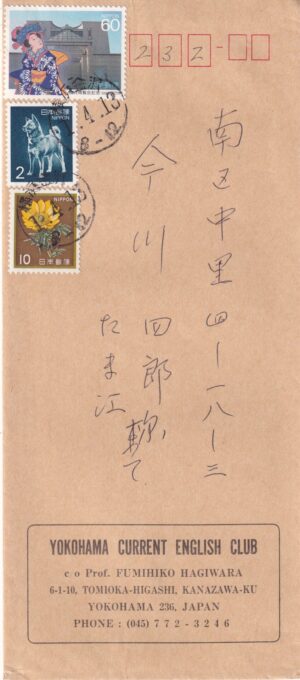 NIPPON
60
日本郵便
NIPPON
2
日本郵便
NIPPON
10
4.13
8-12
232-
南区中里四ー一八ー三
今川四郎様
たま江
YOKOHAMA CURRENT ENGLISH CLUB
c o Prof. FUMIHIKO HAGIWARA
6-1-10, TOMIOKA-HIGASHI, KANAZAWA-KU
YOKOHAMA 236, JAPAN
PHONE : (045) 7 7 2 - 3 2 4 6